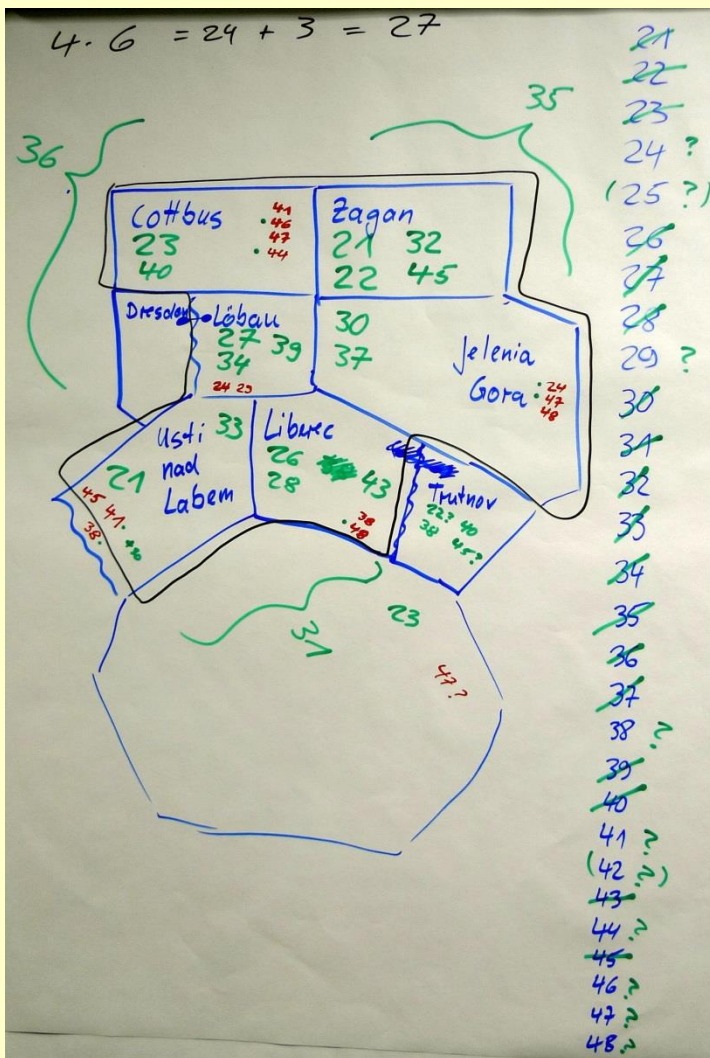 4 · 6 = 24 + 3 = 27
36
35
Cottbus
23
40
41
46
47
44
Zagan
21 32
22 45
Dresden
Löbau
27 39
34
24 29
30
37
Jelenia
Gora
24
47
48
Usti 33
nad
Labem
21
45 41
38
Liberec
26
28 43
38
48
Trutnov
22? 40
38
45?
31
23
47?
21
22
23
24 ?
(25 ?)
26
27
28
29 ?
30
31
32
33
34
35
36
37
38 ?
39
40
41 ?
(42 ?)
43
44 ?
45
46 ?
47 ?
48 ?